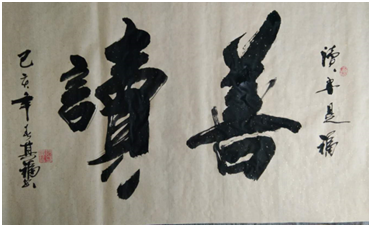 讀書是福
善讀
己亥年